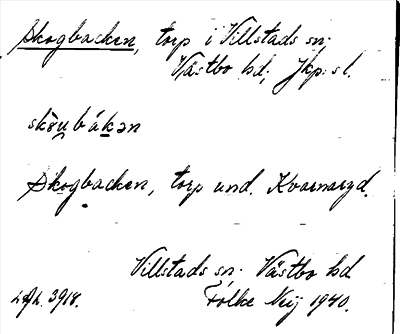 Skogbacken, torp i Villstads sn.
Västbo hd, Jkp:s l.
skòu̯bákən
Skogbacken, torp und. Kvarnaryd.
Villstads sn. Västbo hd
Folke Neij 1940.
3918.